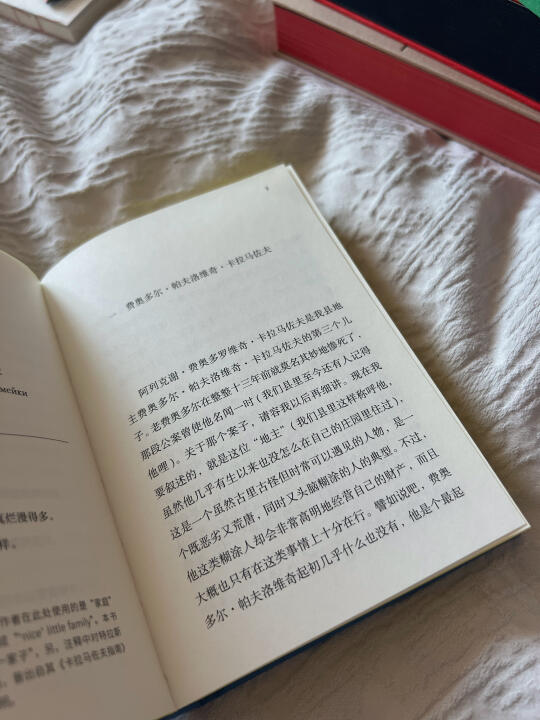 мейки
真烂漫得多。
样。
作者在此处使用的是“家庭”
"'nice' little family"，本书
一家子”，另，注释中对特拉斯
，皆出自其《卡拉马佐夫指南》
一 费奥多尔·帕夫洛维奇·卡拉马佐夫
阿列克谢·费奥多罗维奇·卡拉马佐夫是我县地
主费奥多尔·帕夫洛维奇·卡拉马佐夫的第三个儿
子。老费奥多尔在整整十三年前就莫名其妙地惨死了，
那段公案曾使他名闻一时（我们县里至今还有人记得
他哩）。关于那个案子，请容我以后再细讲。现在我
要叙述的，就是这位“地主”（我们县里这样称呼他，
虽然他几乎有生以来也没怎么在自己的庄园里住过），
这是一个虽然古里古怪但时常可以遇见的人物，是一
个既恶劣又荒唐，同时又头脑糊涂的人的典型。不过，
他这类糊涂人却会非常高明地经营自己的财产，而且
大概也只有在这类事情上十分在行。譬如说吧，费奥
多尔·帕夫洛维奇起初几乎什么也没有，他是个最起